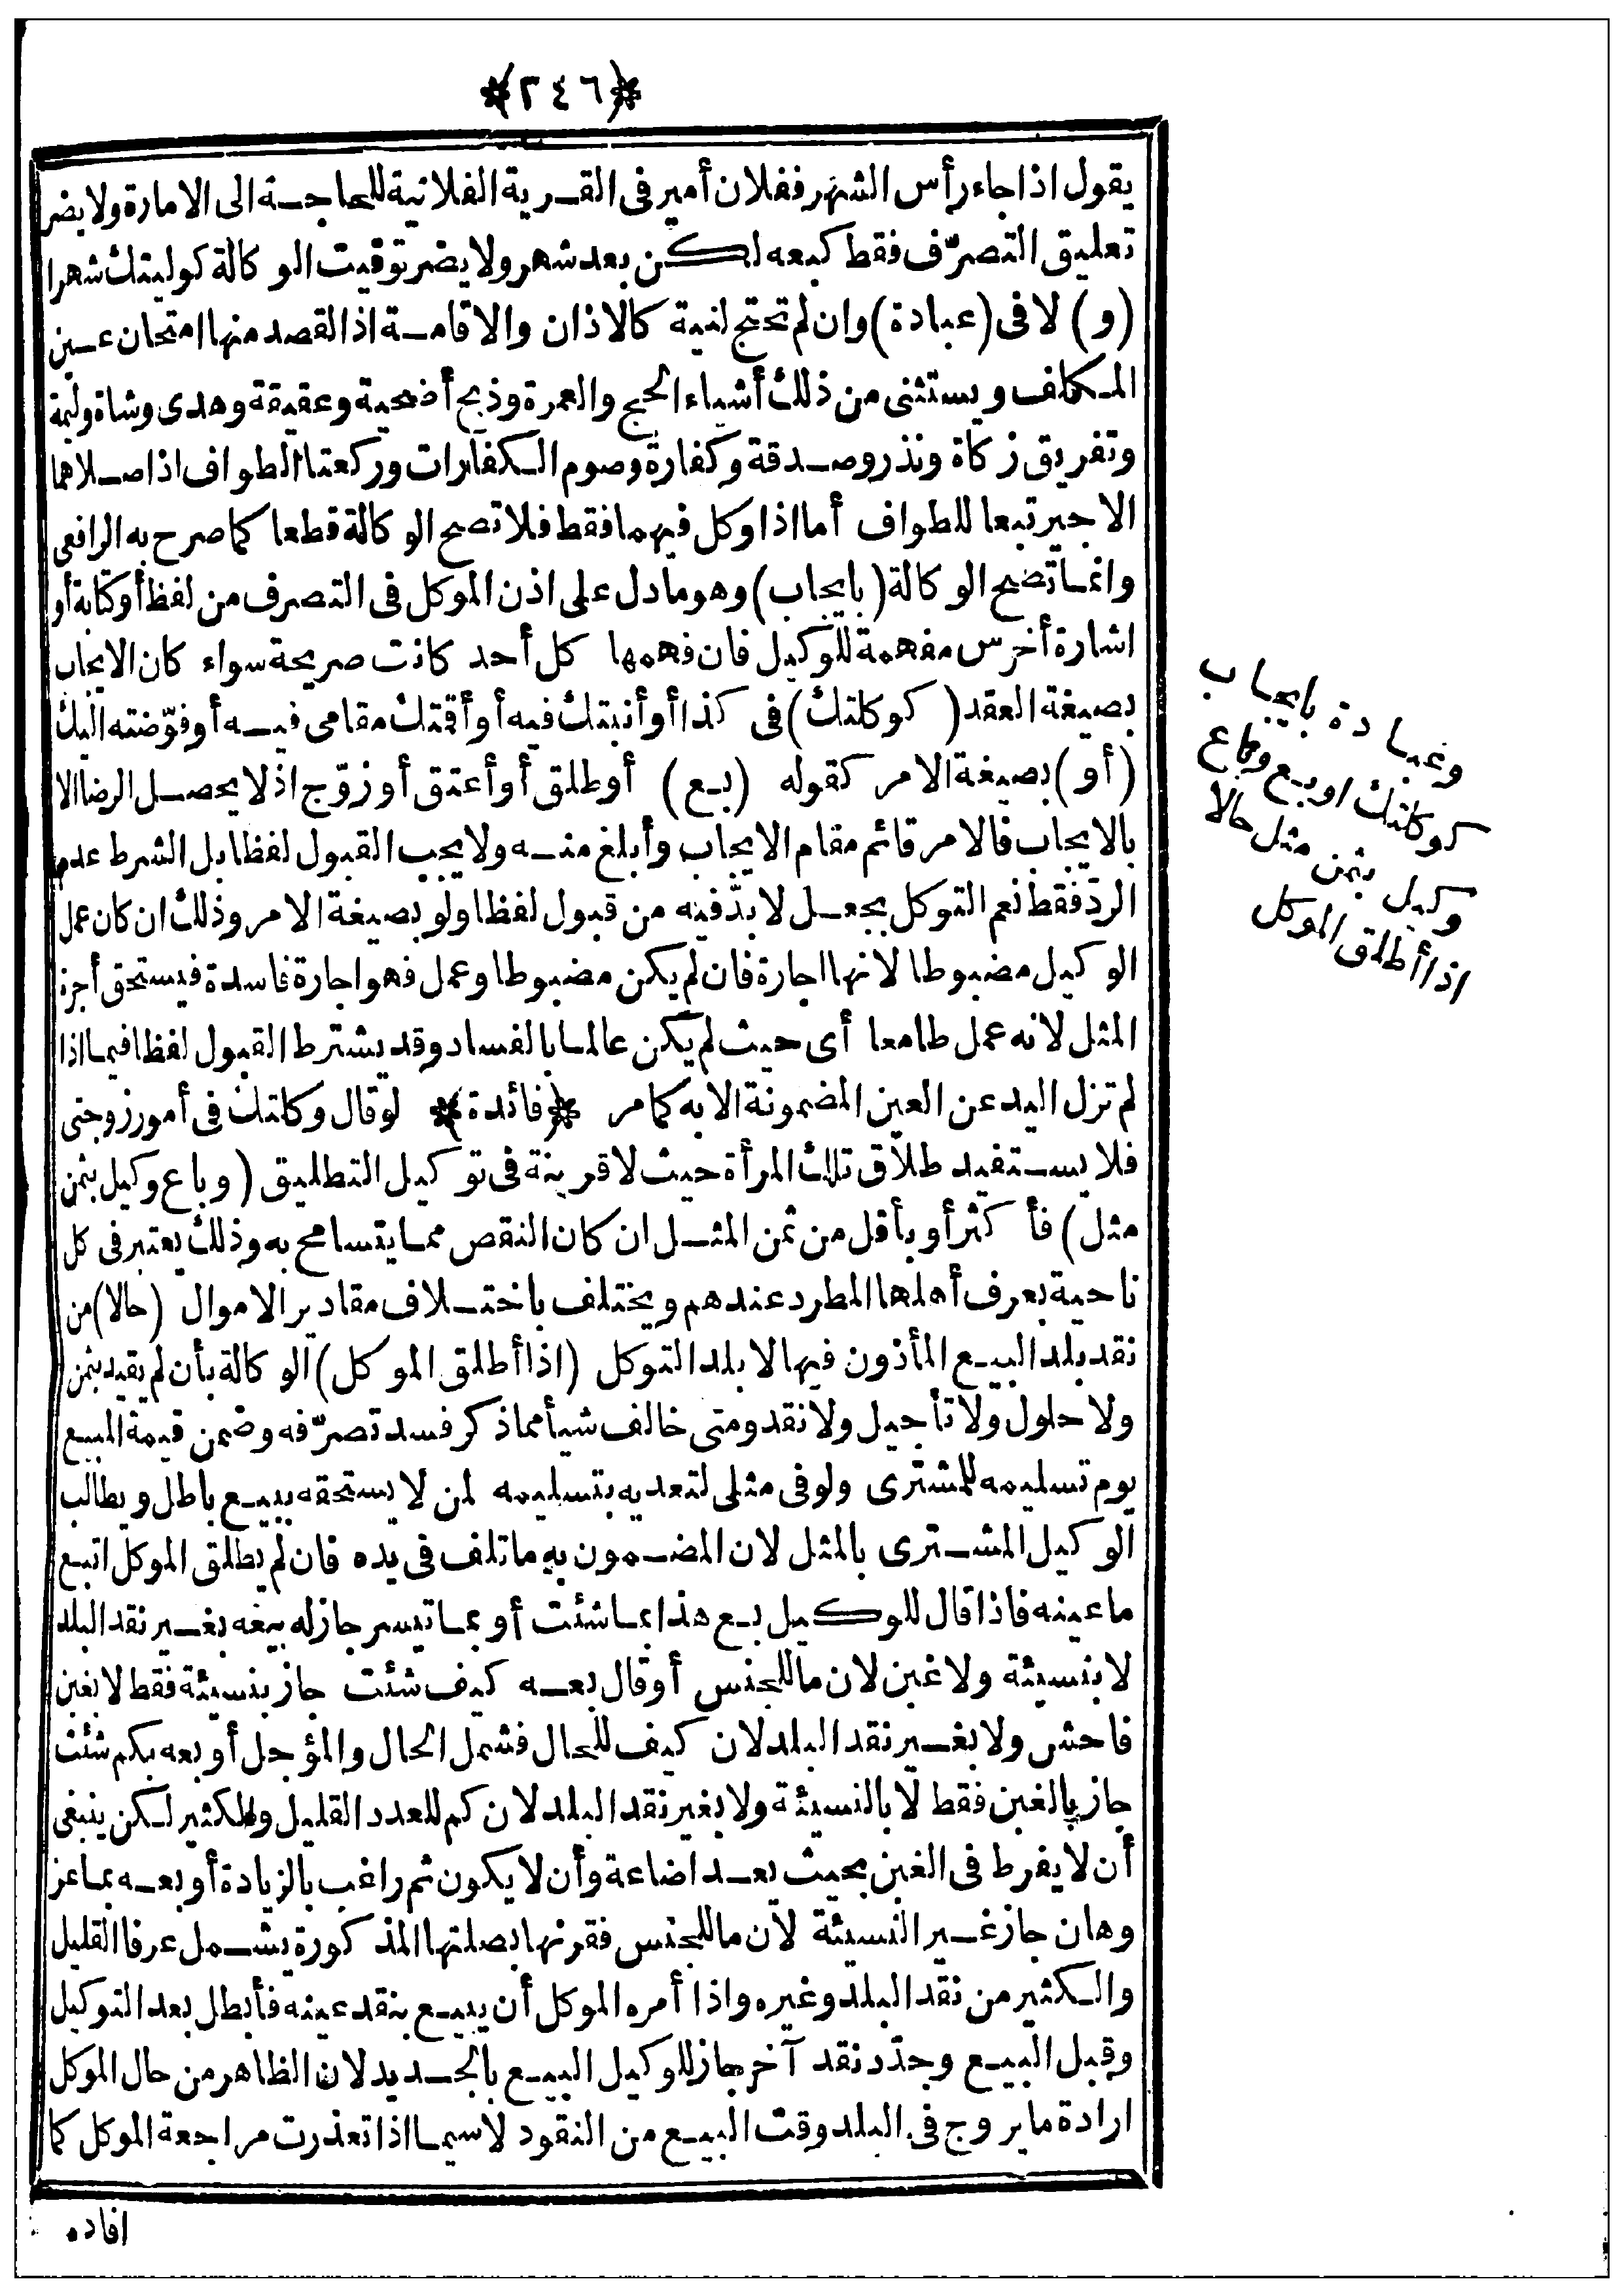 ﴿٢٤٦﴾
يقول اذا جاء رأس الشهر ففلان أمير فى القرية الفلانية للحاجة الى الامارة ولا يضر
تعليق التصرّف فقط كبعه لكن بعد شهر ولا يضر توقيت الوكالة كوليتك شهرا
(و) لا فى (عبادة) وان لم تحتج لنية كالاذان والاقامة اذ القصد منها امتحان عين
المكلف ويستثنى من ذلك أشياء الحج والعمرة وذبح أضحية وعقيقة وهدى وشاة وليمة
وتفريق زكاة ونذر وصدقة وكفارة وصوم الكفارات وركعتا الطواف اذا صلاهما
الاجير تبعا للطواف أما اذا وكل فيهما فقط فلا تصح الوكالة قطعا كما صرح به الرافعى
وانما تصح الوكالة (بايجاب) وهو ما دل على اذن الموكل فى التصرف من لفظ أو كتابة أو
اشارة أخرس مفهمة للوكيل فان فهمها كل أحد كانت صريحة سواء كان الايجاب
بصيغة العقد (كوكلتك) فى كذا أو أنبتك فيه أو أقمتك مقامى فيه أو فوّضته اليك
(أو) بصيغة الامر كقوله (بع) أو طلق أو أعتق أو زوّج اذ لا يحصل الرضا الا
بالايجاب فالامر قائم مقام الايجاب وأبلغ منه ولا يجب القبول لفظا بل الشرط عدم
الردّ فقط نعم التوكل بجعل لا بدّ فيه من قبول لفظا ولو بصيغة الامر وذلك ان كان عمل
الوكيل مضبوطا لانها اجارة فان لم يكن مضبوطا وعمل فهو اجارة فاسدة فيستحق أجرة
المثل لانه عمل طامعا أى حيث لم يكن عالما بالفساد وقد يشترط القبول لفظا فيما اذا
لم تزل اليد عن العين المضمونة الا به كما مر ﴿فائدة﴾ لو قال وكلتك فى أمور زوجتى
فلا يستفيد طلاق تلك المرأة حيث لا قرينة فى توكيل التطليق (وباع وكيل بثمن
مثل) فأكثر أو بأقل من ثمن المثل ان كان النقص مما يتسامح به وذلك يعتبر فى كل
ناحية بعرف أهلها المطرد عندهم ويختلف باختلاف مقادير الاموال (حالا) من
نقد بلد البيع المأذون فيها لا بلد التوكل (اذا أطلق الموكل) الوكالة بأن لم يقيد بثمن
ولا حلول ولا تأجيل ولا نقد ومتى خالف شيأ مما ذكر فسد تصرّفه وضمن قيمة المبيع
يوم تسليمه للمشترى ولو فى مثلى لتعديه بتسليمه لمن لا يستحقه ببيع باطل ويطالب
الوكيل المشترى بالمثل لان المضمون به ما تلف فى يده فان لم يطلق الموكل اتبع
ما عينه فاذا قال للوكيل بع هذا بما شئت أو بما تيسر جاز له بيعه بغير نقد البلد
لا بنسيئة ولا غبن لان ما للجنس أو قال بعه كيف شئت جاز بنسيئة فقط لا بغبن
فاحش ولا بغير نقد البلد لان كيف للحال فشمل الحال والمؤجل أو بعه بكم شئت
جاز بالغبن فقط لا بالنسيئة ولا بغير نقد البلد لان كم للعدد القليل والكثير لكن ينبغى
أن لا يفرط فى الغبن بحيث يعد اضاعة وأن لا يكون ثم راغب بالزيادة أو بعه بما عز
وهان جاز غير النسيئة لان ما للجنس فقرنها بصلتها المذكورة يشمل عرفا القليل
والكثير من نقد البلد وغيره واذا أمره الموكل أن يبيع بنقد عينه فأبطل بعد التوكيل
وقبل البيع وجدّد نقد آخر جاز للوكيل البيع بالجديد لان الظاهر من حال الموكل
ارادة ما يروج فى البلد وقت البيع من النقود لا سيما اذا تعذرت مراجعة الموكل كما
افاده
وعبادة بايجاب
كوكلتك او بع وباع
وكيل بثمن مثل حالا
اذا أطلق الموكل